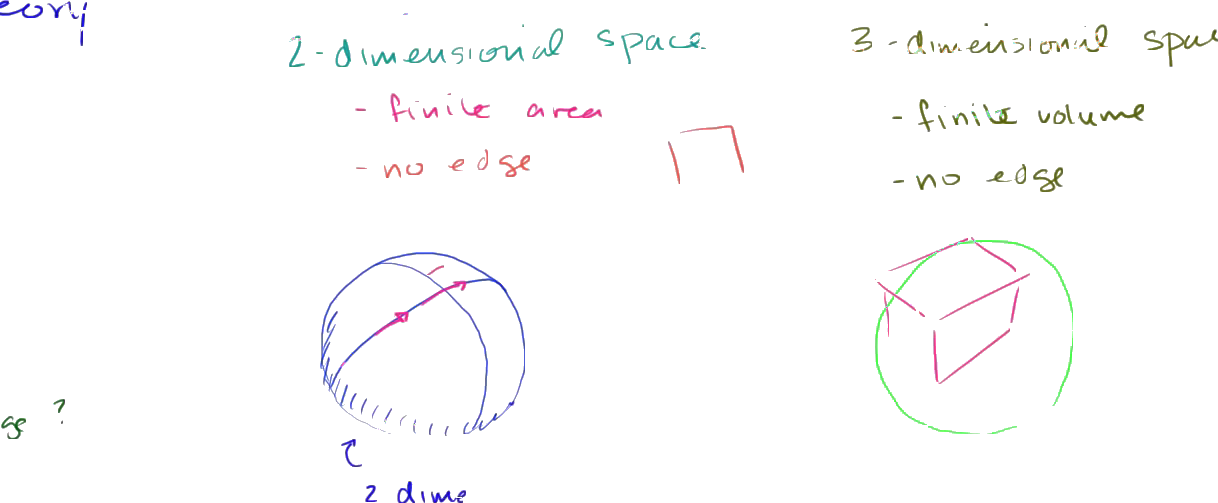 eory
2-dimensional space
- finite area
- no edge
3-dimensional spac
- finite volume
- no edge
ge ?
2 dime